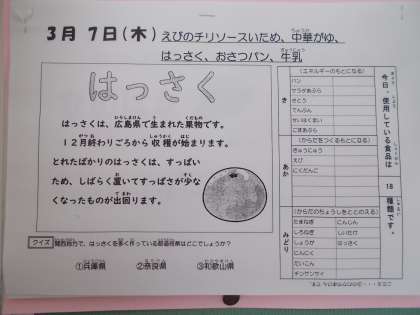 3月 7日(木) えびのチリソースいため、中華がゆ、
はっさく、おさつパン、牛乳
はっさく
はっさくは、広島県で生まれた果物です。
12月終わりごろから収穫が始まります。
とれたばかりのはっさくは、すっぱい
ため、しばらく置いてすっぱさが少な
くなったものが出回ります。
クイズ
関西地方で、はっさくを多く作っている都道府県はどこでしょうか?
①兵庫県 ②奈良県 ③和歌山県
今日、使用している食品は
18
種類です。
き
(エネルギーのもとになる)
パン
サラダあぶら
さとう
でんぷん
せいはくまい
ごまあぶら
あか
(からだをつくるもとになる)
ぎゅうにゅう
えび
にくだんご
みどり
(からだのちょうしをととのえる)
たまねぎ にんじん
しろねぎ しいたけ
しょうが はっさく
にんにく
だいこん
チンゲンサイ